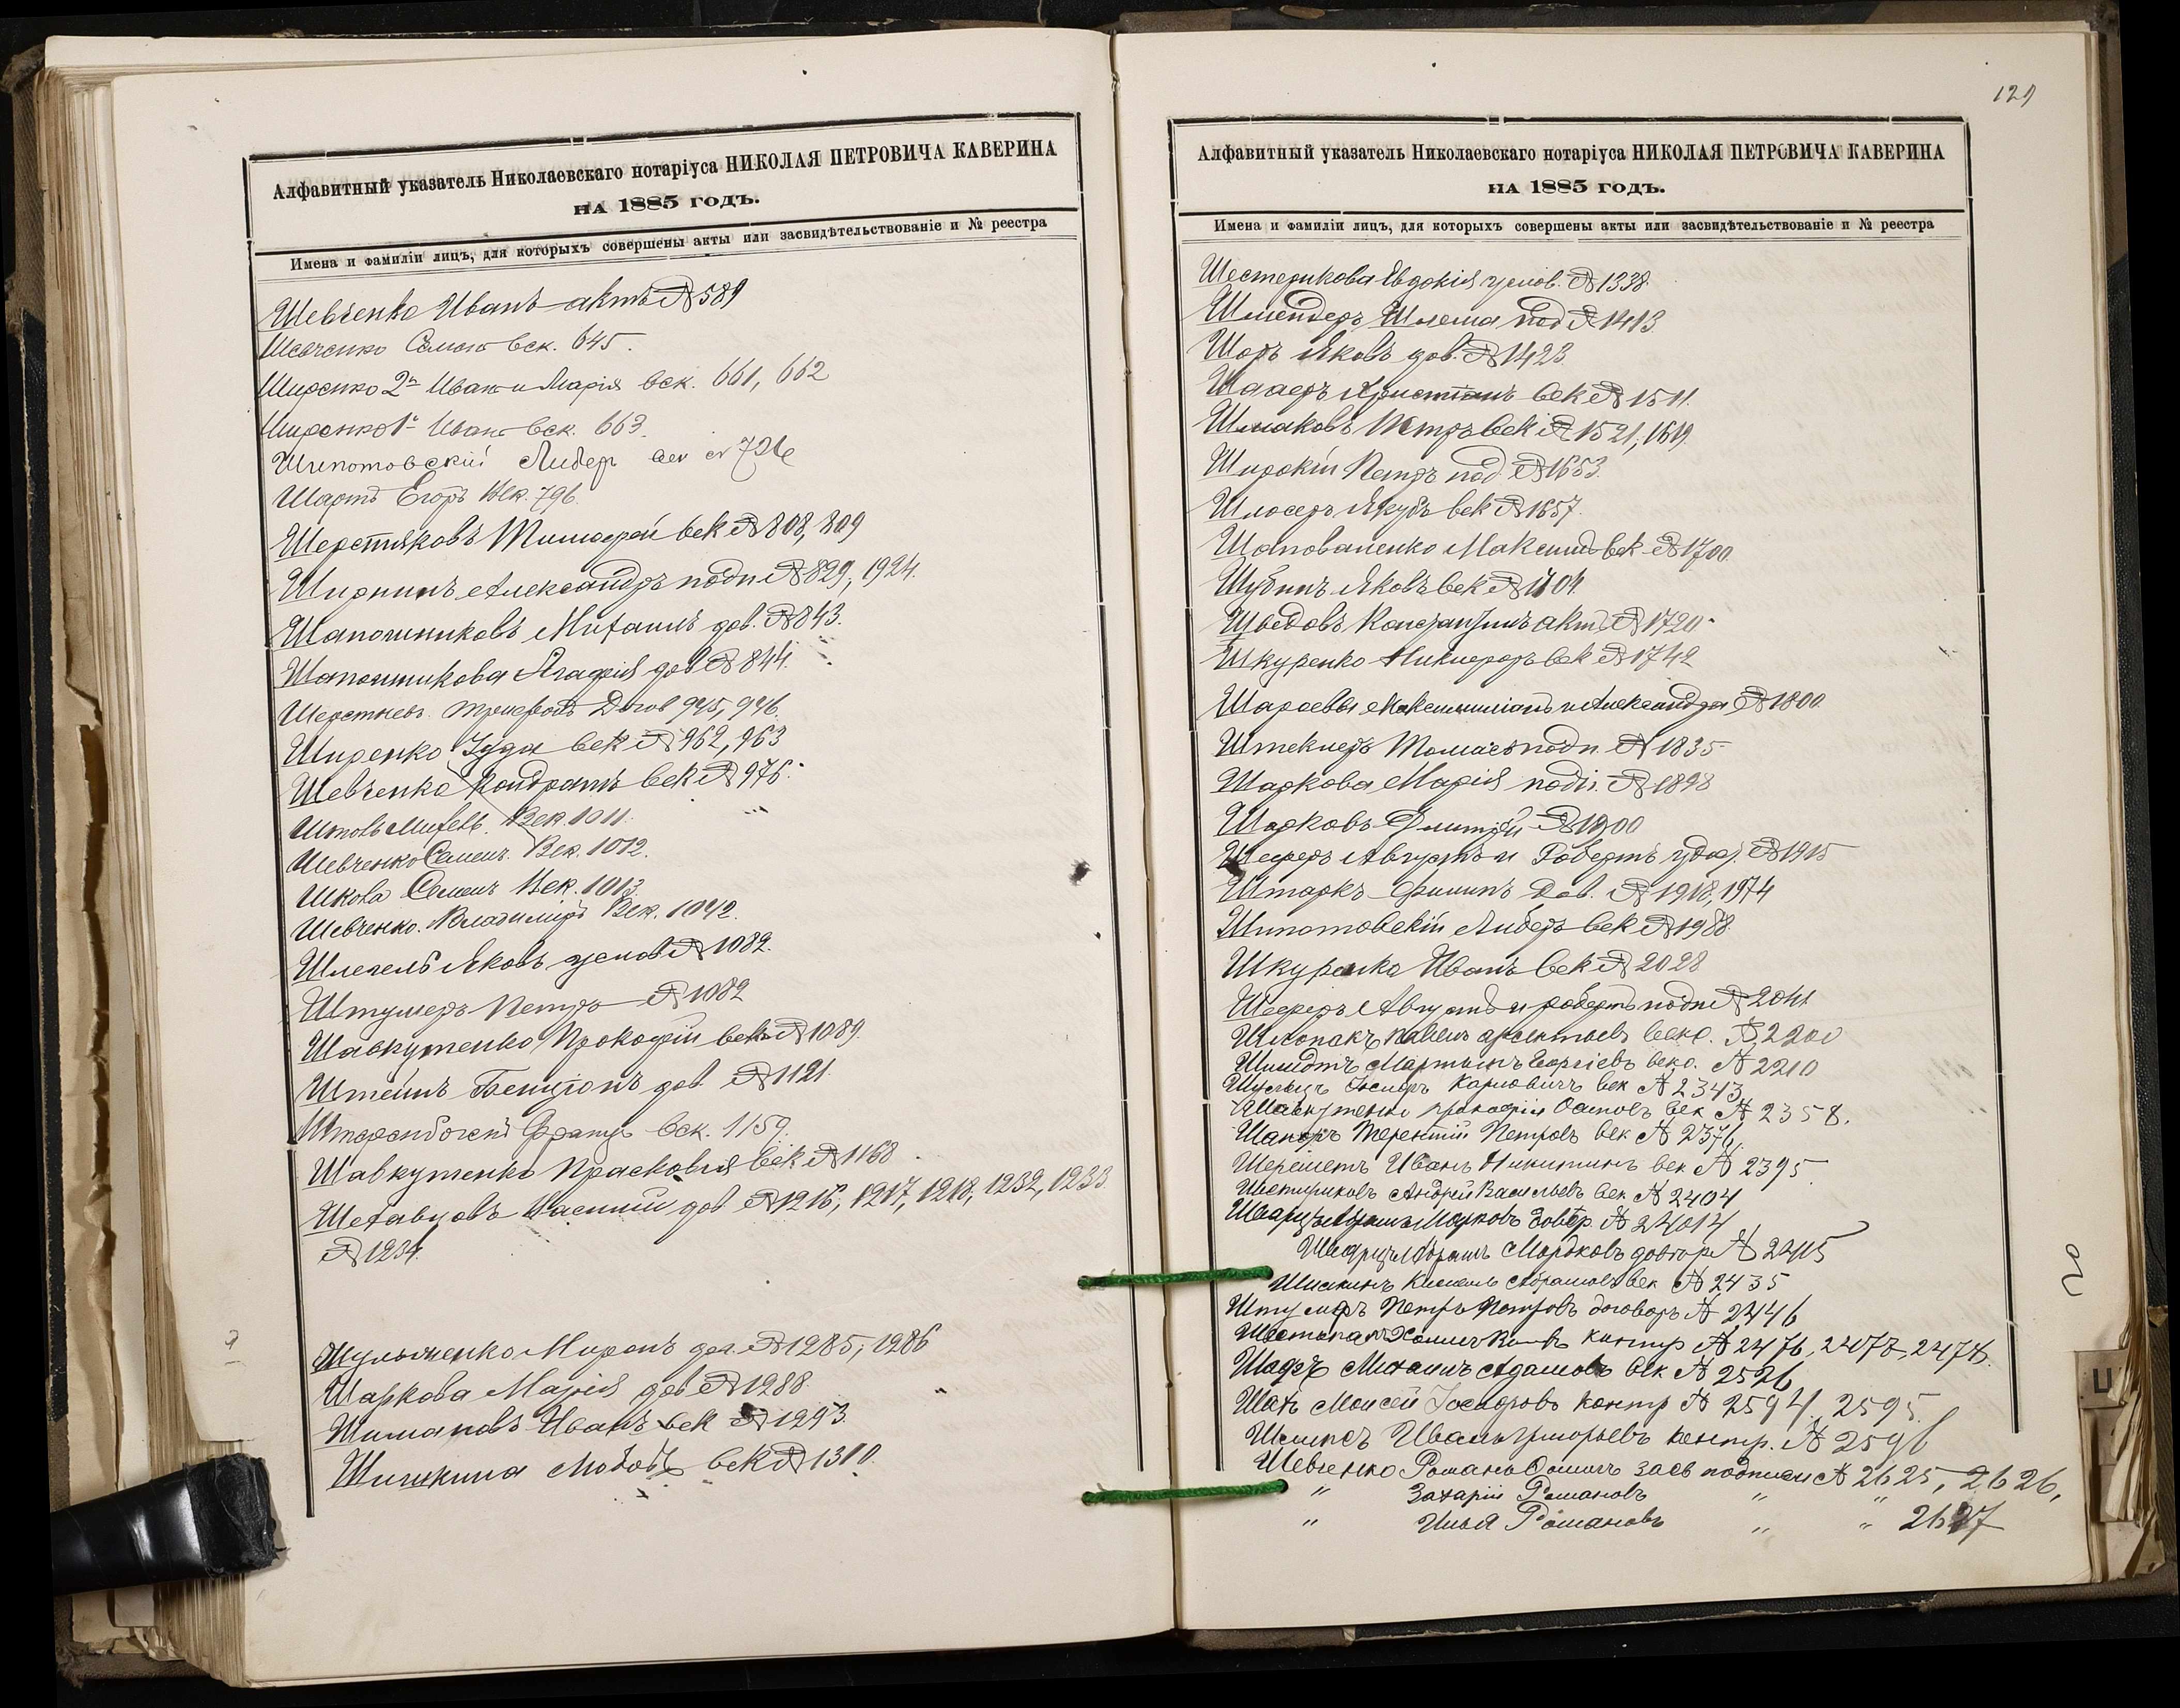 Алфавитный указатель Николаевскаго нотаріуса НИКОЛАЯ ПЕТРОВИЧА КАВЕРИНА
НА 1885 ГОДЪ.
Имена и фамиліи лицъ, для которыхъ совершены акты или засвидѣтельствованіе и № реестра
Шевченко Иванъ актъ № 589
Шевченко Семенъ век. 645.
Ширенко 2й Иванъ и Марія век. 661, 662
Ширенко 1й Иванъ век. 663.
Шипотовскій Либеръ век № 726
Шартъ Егоръ Век. 796.
Шерстяковъ Тимофей век № 808, 809
Ширнинъ Александръ подп № 829, 1924.
Шапошниковъ Михаилъ дов. № 843.
Шапошникова Агафія дов № 844.
Шерстневъ Трифонъ Догов 945, 946.
Ширенко Іуда век № 962, 963
Шевченко Кондратъ век № 976.
Михель. Век. 1011.
Шевченко Семенъ. Век. 1012.
Шкова Семенъ Век. 1013.
Шевченко. Владиміръ Век. 1042.
Шлегель Яковъ услов № 1082.
Штумеръ Петръ № 1082
Шавкутенко Прокофій век. № 1089.
Штейнъ Бенціонъ дов № 1121.
Францъ век. 1159.
Шавкутенко Прасковія век № 1168.
Василій дов № 1216, 1217, 1218, 1232, 1233.
№ 1234.
Шульженко Миронъ дог. № 1285, 1286
Шаркова Марія дов № 1288.
Шимановъ Иванъ век № 1293.
Шишкина Любовь век № 1310.
129
Алфавитный указатель Николаевскаго нотаріуса НИКОЛАЯ ПЕТРОВИЧА КАВЕРИНА
НА 1885 ГОДЪ.
Имена и фамиліи лицъ, для которыхъ совершены акты или засвидѣтельствованіе и № реестра
Шестерикова Евдокія услов. № 1338.
Шмендеръ Шлема под № 1413
Шоръ Яковъ дов. № 1423.
Шааеръ Христіанъ век № 1511.
Шмаковъ Петръ век № 1521, 1619.
Широкій Петръ под № 1653.
Шлосеръ Якубъ век № 1657.
Шаповаленко Максимъ век № 1700.
Шубинъ Яковъ век № 1704.
Шведовъ Константинъ акт. № 1720.
Шкуренко Никифоръ век № 1742
Шараевы Максимиліанъ и Александра № 1800.
Штекиеръ Томасъ подп. № 1835.
Шаркова Марія подп. № 1898
Шарковъ Дмитрій № 1900
Шеферъ Августъ и Робертъ удос. № 1915
Штаркъ Филипъ Дов. № 1918, 1974
Шипотовскій Либеръ век № 1988.
Шкуренко Иванъ век № 2028
Шеферъ Августъ и Робертъ подп № 2041
Шкопакъ Павелъ Арсентьевъ века. № 2200
Шмидтъ Мартынъ Георгіевъ века. № 2210
Шульцъ Іосифъ Карловичъ век № 2343.
Шавкутенко Прокофій Осиповъ век № 2358.
Шапоръ Терентій Петровъ век № 2376.
Шереметъ Иванъ Никитинъ век № 2395.
Шестириковъ Андрей Васильевъ век № 2404
Шварцъ Абрамъ Марковъ довѣр. № 24014
Шварцъ Абрамъ Мордковъ договоръ № 2415
Шишкинъ Абрамовъ век № 2435
Штумеръ Петръ Петровъ договоръ № 2446
контр № 2476, 2477, 2478.
Шадеъ Михаилъ Адамовъ век № 2526
Шахъ Моисей Іосифовъ контр № 2594, 2595.
Иванъ Григорьевъ контр. № 2596
Шевченко Романъ Осиповъ засв подписи № 2625, 2626,
" Захарій Романовъ " "
" Илья Романовъ " " 2627
Ш